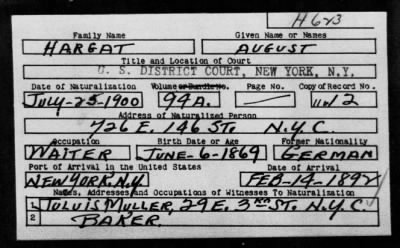 H623
Family Name Given Name or Names
HARGAT AUGUST
Title and Location of Court
U. S. DISTRICT COURT, NEW YORK, N.Y.
Date of Naturalization Volume or Bundle No. Page No. Copy of Record No.
JULY-25-1900 94A. 2
Address of Naturalized Person
726 E. 146 ST. N.Y.C.
Occupation Birth Date or Age Former Nationality
WAITER JUNE-6-1869 GERMAN
Port of Arrival in the United States Date of Arrival
NEW YORK. N.Y. FEB-14-1892
Names, Addresses and Occupations of Witnesses To Naturalization
1 MULLER, 29 E. 3RD ST. N.Y.C.
2 BAKER.